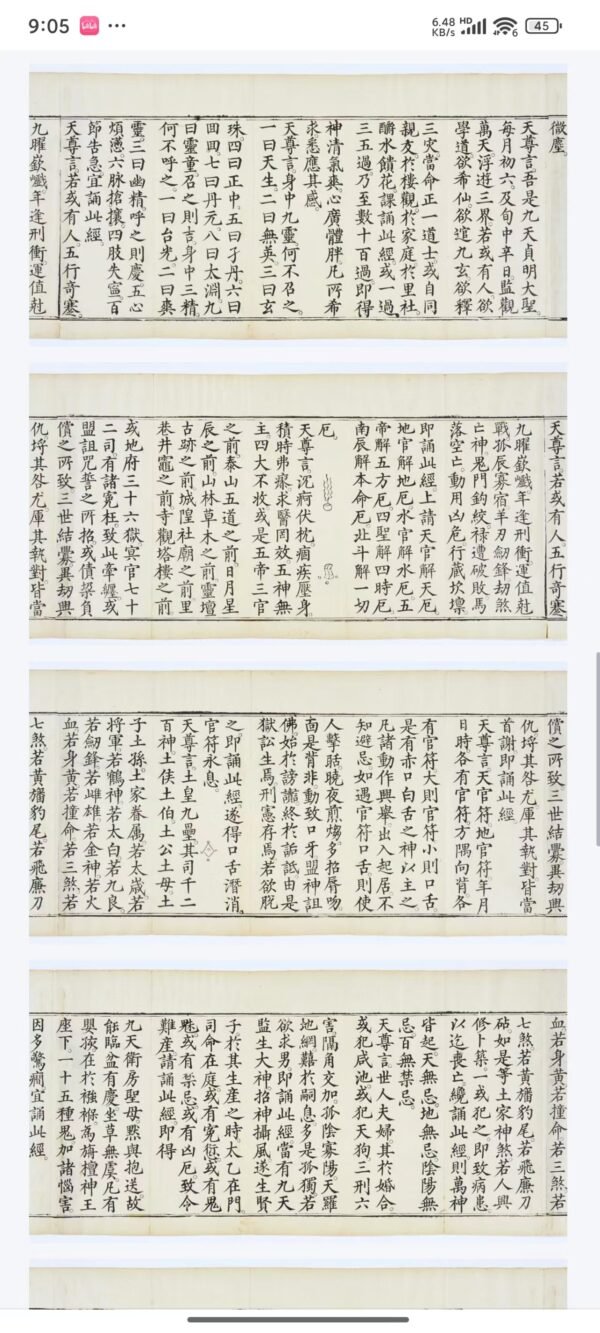 9:05
LaLa
•••
6.48
KB/s
HD
6
45
微塵
天尊言吾是九天貞明大聖
每月初六及旬中辛日監觀
萬天浮遊三界若或有人欲
學道欲希仙欲逭九玄欲釋
三灾當命正一道士或自同
親友於樓觀於家庭於里社
醮水饋花課誦此經或一過
三五過乃至數十百過即得
神清氣爽心廣體胖凡所希
求悉應其感
天尊言身中九靈何不召之
一曰天生二曰無英三曰玄
珠四曰正中五曰孑丹六曰
回回七曰丹元八曰太淵九
曰靈童召之則吉身中三精
何不呼之一曰台光二曰爽
靈三曰幽精呼之則慶五心
煩懣六脉搶攘四肢失寍百
節告急宜誦此經
天尊言若或有人五行奇蹇
九曜嶔巇年逢刑衝運值尅
天尊言若或有人五行奇蹇
九曜嶔巇年逢刑衝運值尅
戰孤辰寡宿羊刃劔鋒劫煞
亡神鬼門鈎絞禄遭破敗馬
落空亡動用凶危行藏坎壈
即誦此經上請天官解天厄
地官解地厄水官解水厄五
帝解五方厄四聖解四時厄
南辰解本命厄北斗解一切
厄
天尊言沉痾伏枕痼疾壓身
積時弗瘳求醫罔效五神無
主四大不收或是五帝三官
之前泰山五道之前日月星
辰之前山林草木之前靈壇
古跡之前城隍社廟之前里
巷井竈之前寺觀塔樓之前
或地府三十六獄冥官七十
二司有諸寃枉致此牽纏或
盟詛咒誓之所招或債梁負
償之所致三世結釁異劫興
仇埒其咎尤厙其執對皆當
償之所致三世結釁異劫興
仇埒其咎尤厙其執對皆當
首謝即誦此經
天尊言天官符地官符年月
日時各有官符方隅向背各
有官符大則官符小則口舌
是有赤口白舌之神以主之
凡諸動作興舉出入起居不
知避忌如遇官符口舌則使
人擊聒曉夜煎煼多招脣吻
面是背非動致口牙盟神詛
佛始於謗讟終於詬詆由是
獄訟生焉刑憲存焉若欲脫
之即誦此經遂得口舌潛消
官符永息
天尊言土皇九壘其司千二
百神土侯土伯土公土母土
子土孫土家眷属若太歲若
將軍若鶴神若太白若九良
若劔鋒若雌雄若金神若火
血若身黄若撞命若三煞若
七煞若黄旛豹尾若飛廉刀
血若身黄若撞命若三煞若
七煞若黄旛豹尾若飛廉刀
砧如是等土家神煞若人興
修卜築一或犯之即致病患
以迄喪亡纔誦此經則萬神
皆起天無忌地無忌陰陽無
忌百無禁忌
天尊言世人夫婦其於婚合
或犯咸池或犯天狗三刑六
害隔角交加孤陰寡陽天羅
地網囏於嗣息多是孤獨若
欲求男即誦此經當有九天
監生大神招神攝風遂生賢
子於其生産之時太乙在門
司命在庭或有寃愆或有鬼
魅或有禁忌或有凶厄致令
難産請誦此經即得
九天衛房聖母黙與抱送故
能臨盆有慶坐草無虞凡有
嬰孩在於襁褓為旃檀神王
座下一十五種鬼加諸惱害
因多驚癇宜誦此經